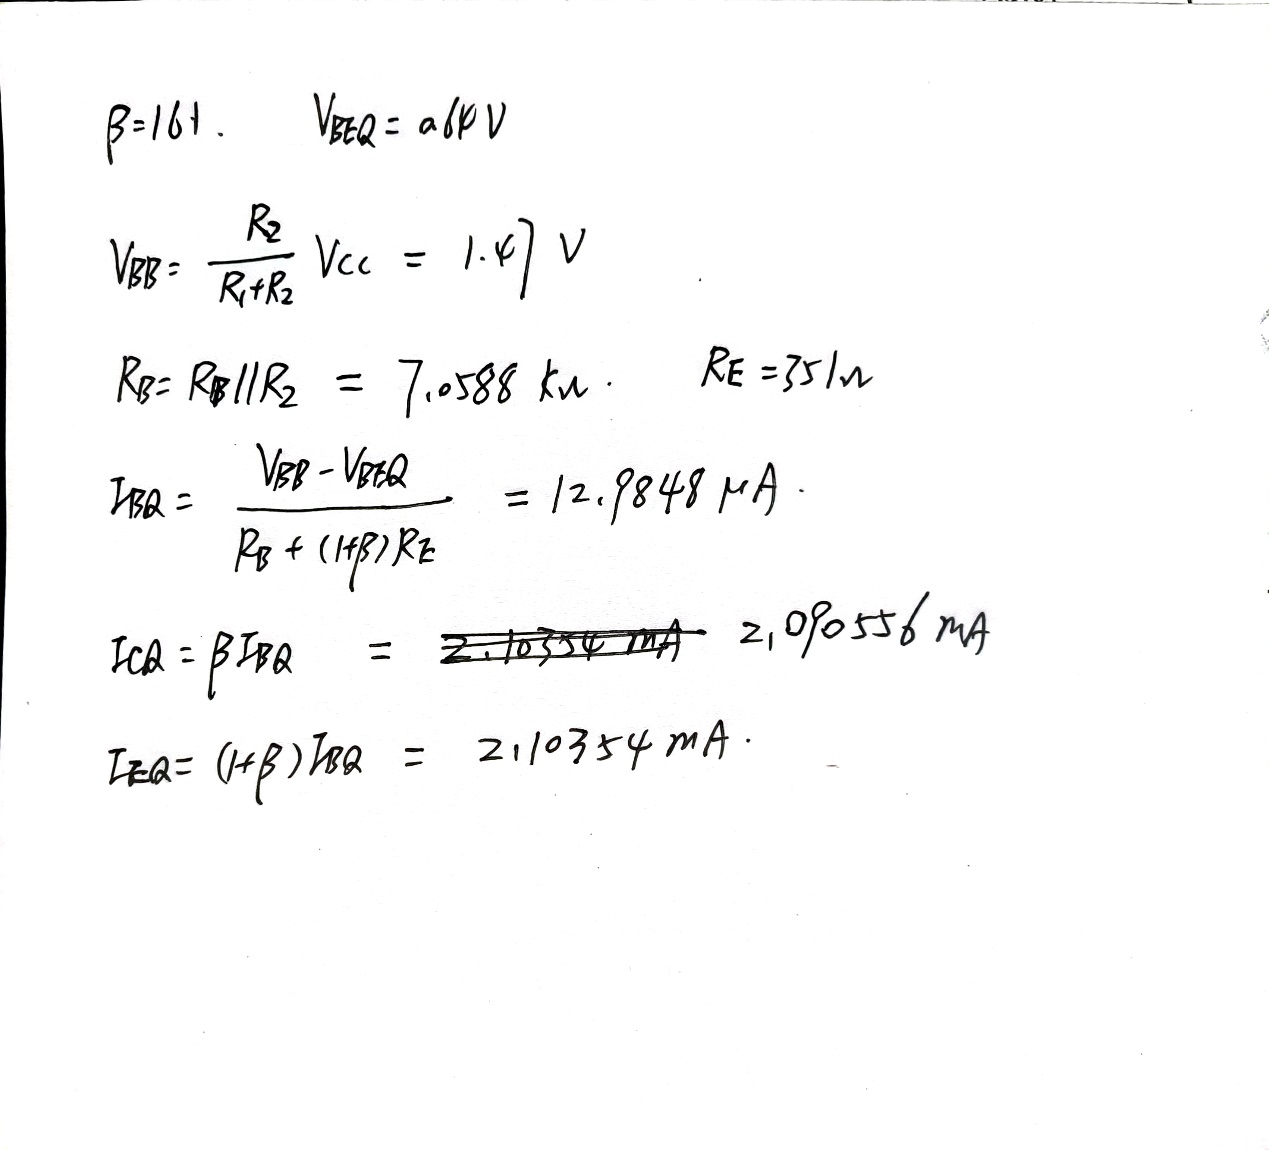 β=161. V_BEQ = 0.64 V
V_BB = \frac{R_2}{R_1+R_2} V_CC = 1.47 V
R_B = R_B // R_2 = 7.0588 kΩ. R_E = 351Ω
I_BQ = \frac{V_BB - V_BEQ}{R_B + (1+β) R_E} = 12.9848 μA.
I_CQ = β I_BQ = ~~2.10354 mA~~ 2.090556 mA
I_EQ = (1+β) I_BQ = 2.10354 mA.